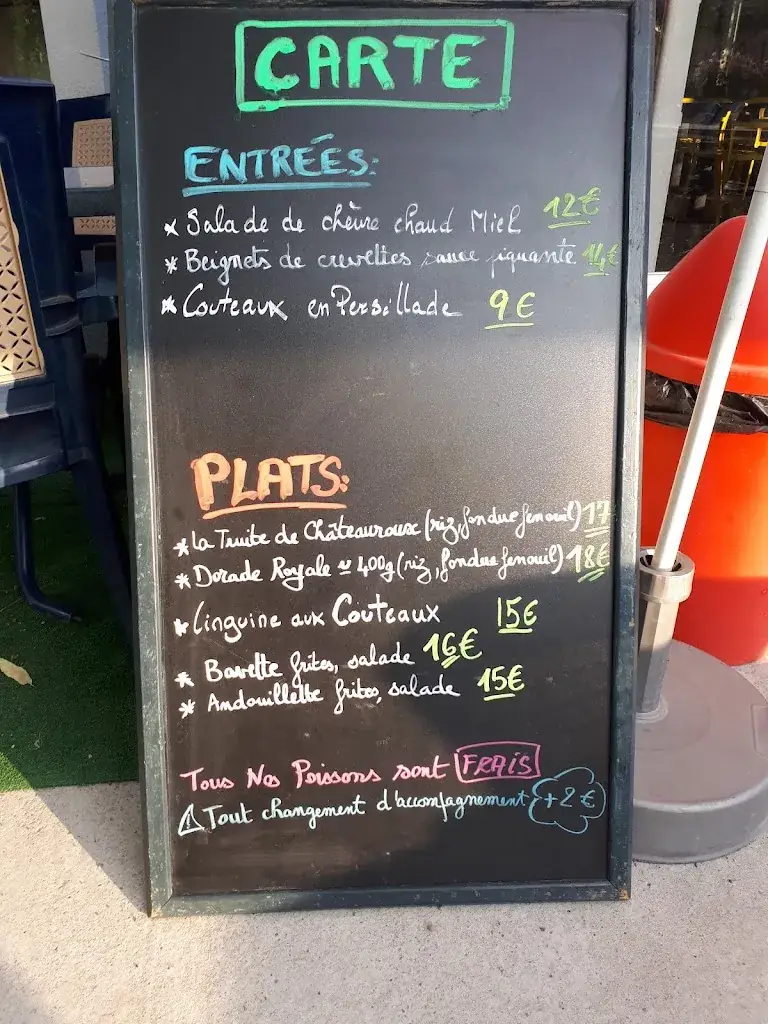 CARTE
ENTRÉES:
* Salade de chèvre chaud Miel 12€
* Beignets de crevettes sauce piquante 14€
* Couteaux en Persillade 9€
PLATS:
* La Truite de Châteauroux (riz, fondue fenouil) 17
* Dorade Royale ≃ 400g (riz, fondue fenouil) 18€
* Linguine aux Couteaux 15€
* Bavette frites, salade 16€
* Andouillette frites, salade 15€
Tous Nos Poissons sont FRAIS
⚠ Tout changement d'accompagnement +2€